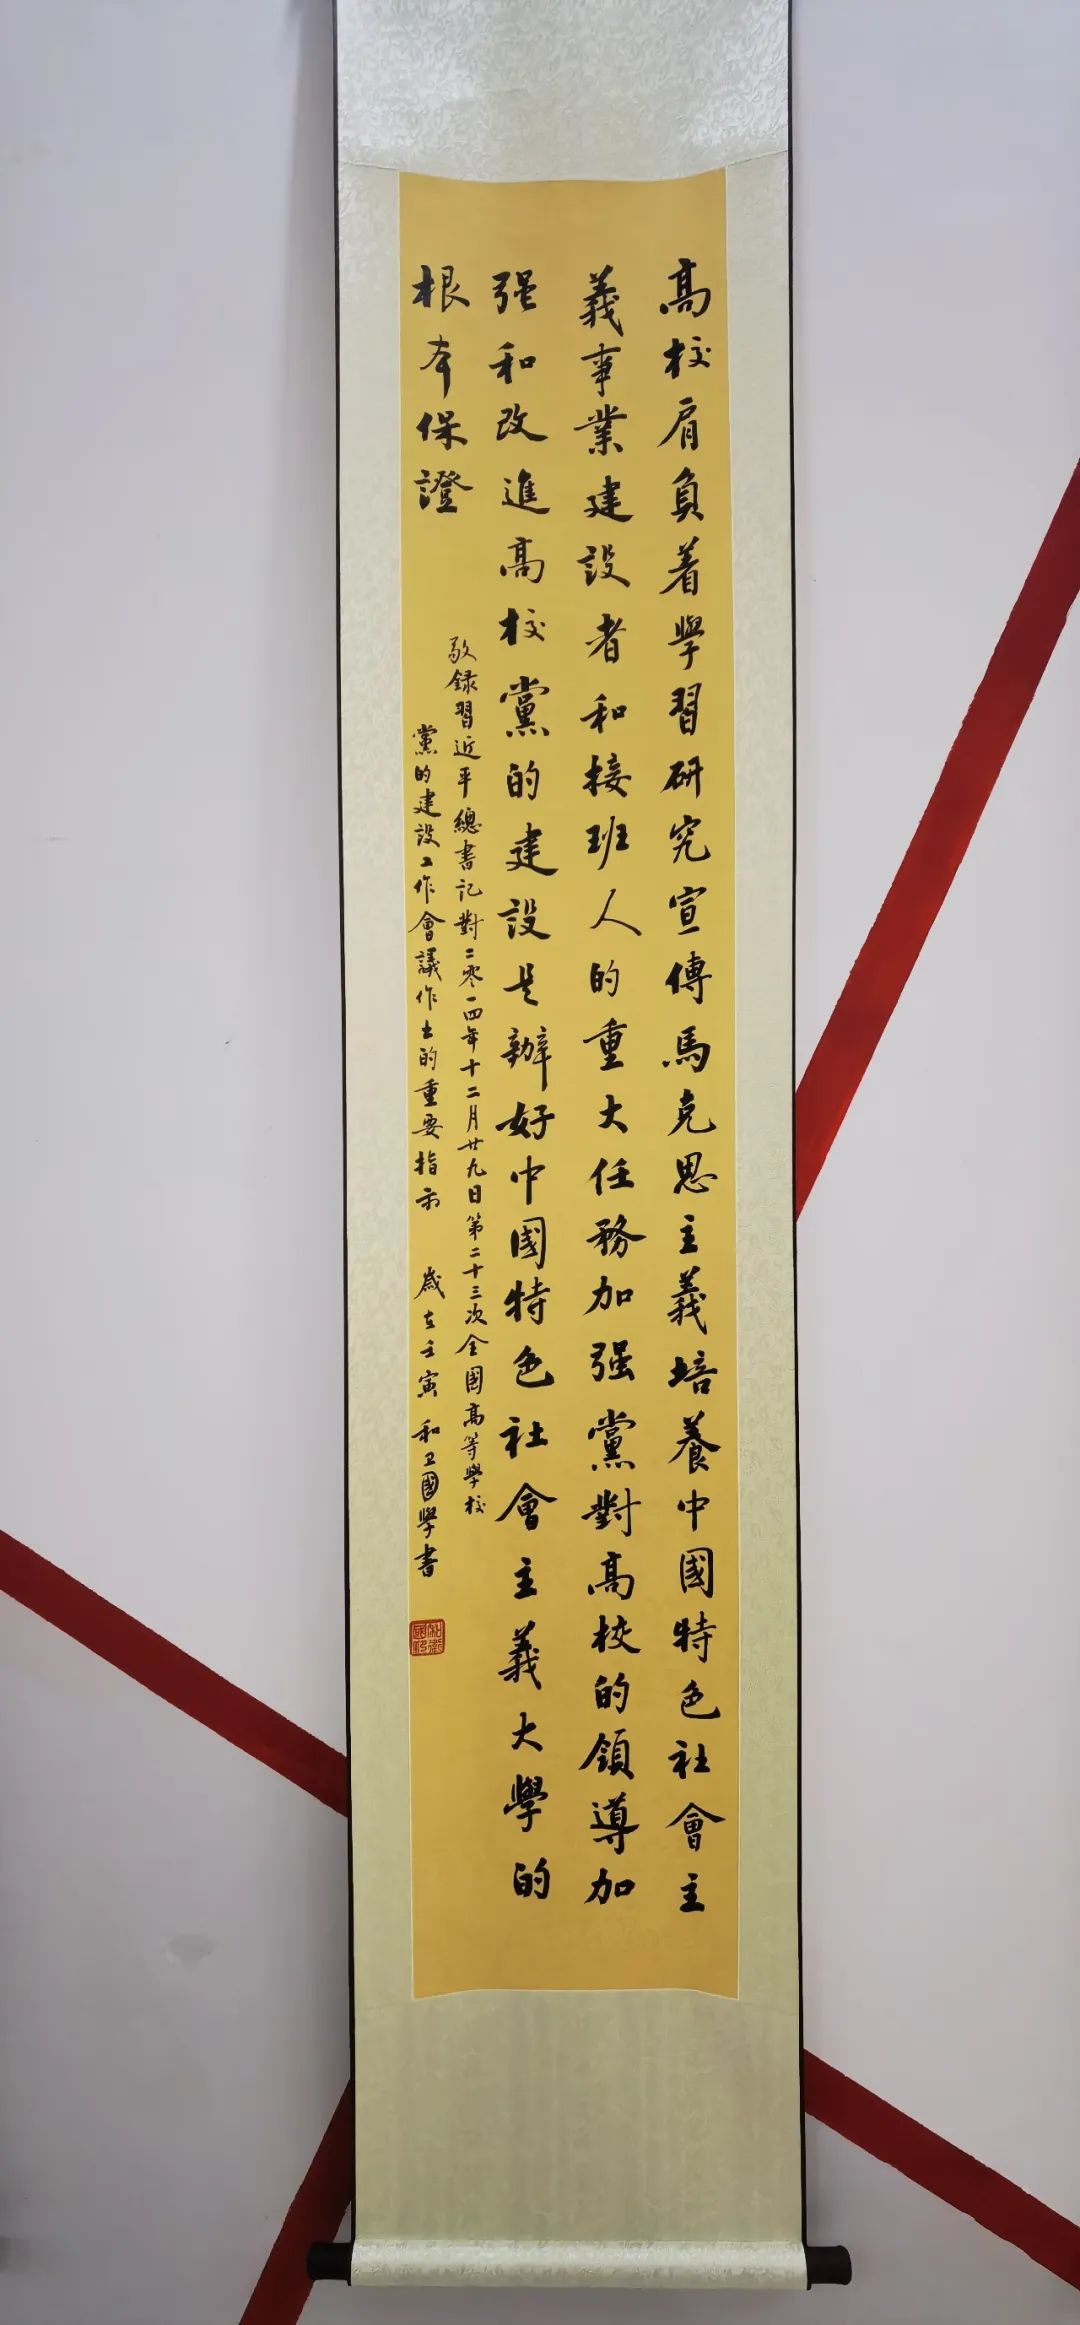 高校肩負着學習研究宣傳馬克思主義培養中國特色社會主
義事業建設者和接班人的重大任務加强黨對高校的領導加
强和改進高校黨的建設是辦好中國特色社會主義大學的
根本保證
敬録習近平總書記對二零一四年十二月廿九日第二十三次全國高等學校
黨的建設工作會議作出的重要指示 歲在壬寅 和卫國學書